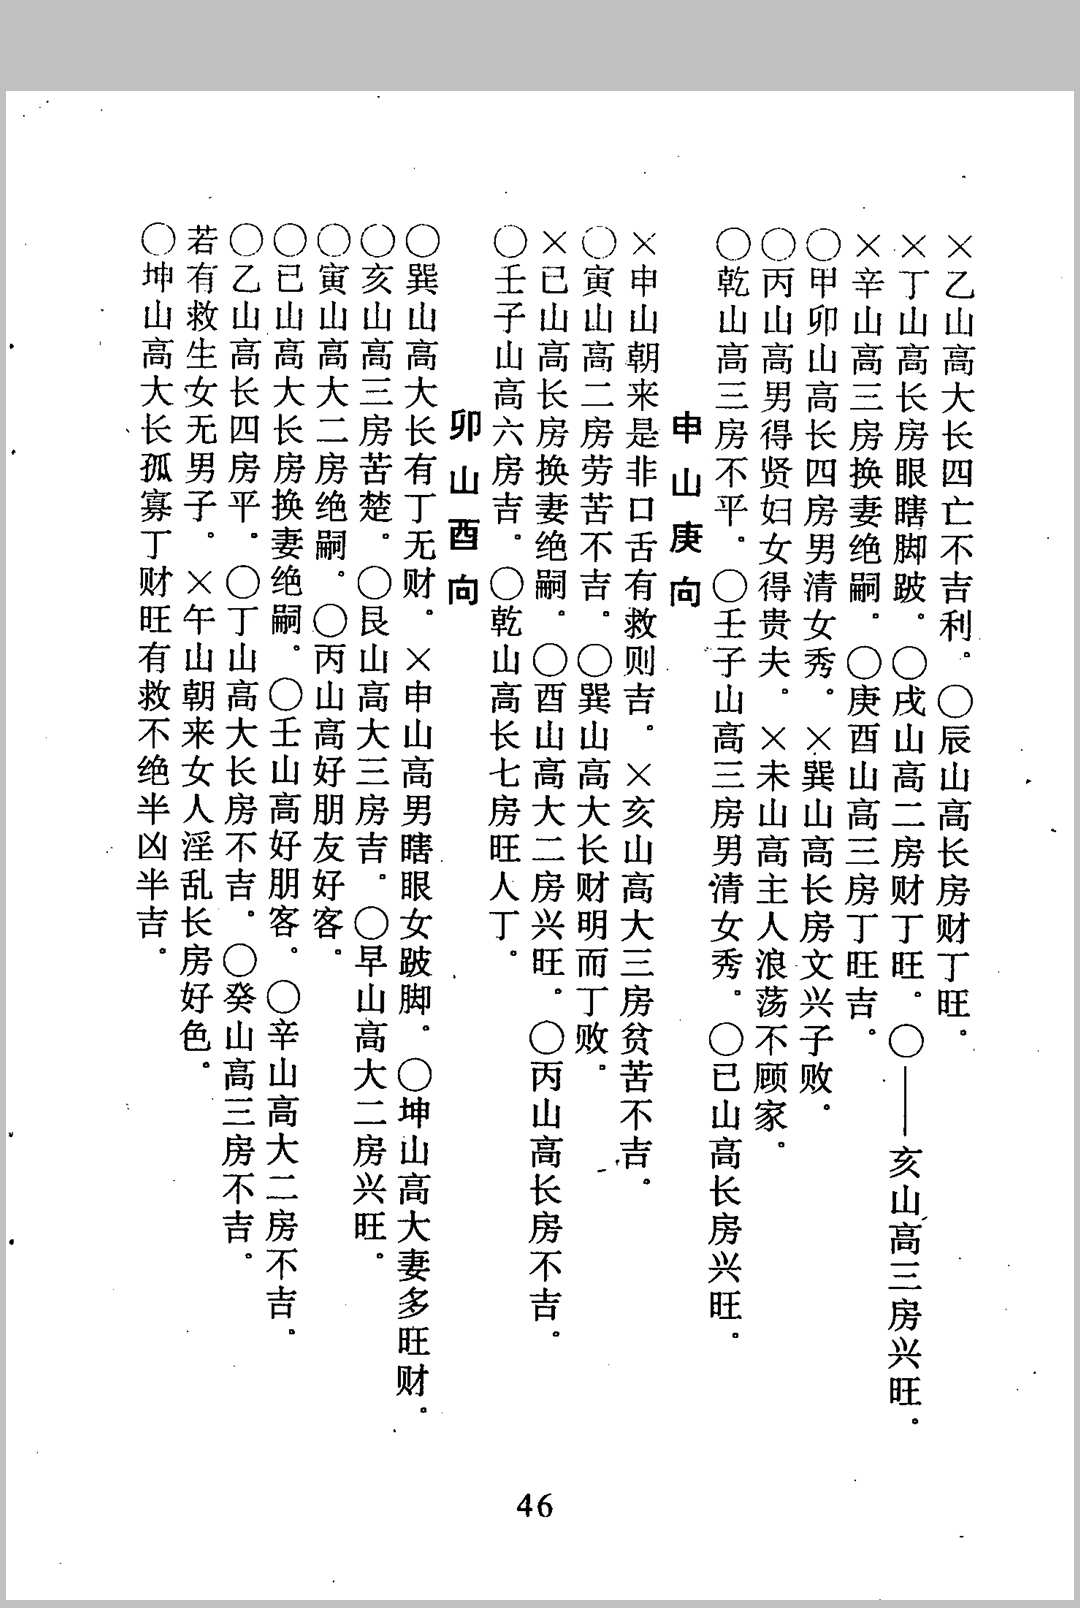 ×乙山高大长四亡不吉利。○辰山高长房财丁旺。
×丁山高长房眼瞎脚跛。○戌山高二房财丁旺。○——亥山高三房兴旺。
×辛山高三房换妻绝嗣。○庚酉山高三房丁旺吉。
○甲卯山高长四房男清女秀。×巽山高长房文兴子败。
○丙山高男得贤妇女得贵夫。×未山高主人浪荡不顾家。
○乾山高三房不平。○壬子山高三房男清女秀。○已山高长房兴旺。
申山庚向
×申山朝来是非口舌有救则吉。×亥山高大三房贫苦不吉。
○寅山高二房劳苦不吉。○巽山高大长财明而丁败。
×已山高长房换妻绝嗣。○酉山高大二房兴旺。○丙山高长房不吉。
○壬子山高六房吉。○乾山高长七房旺人丁。
卯山酉向
○巽山高大长有丁无财。×申山高男瞎眼女跛脚。○坤山高大妻多旺财。
○亥山高三房苦楚。○艮山高大三房吉。○早山高大二房兴旺。
○寅山高大二房绝嗣。○丙山高好朋友好客。
○已山高大长房换妻绝嗣。○壬山高好朋客。○辛山高大二房不吉。
○乙山高长四房平。○丁山高大长房不吉。○癸山高三房不吉。
若有救生女无男子。×午山朝来女人淫乱长房好色。
○坤山高大长孤寡丁财旺有救不绝半凶半吉。
46